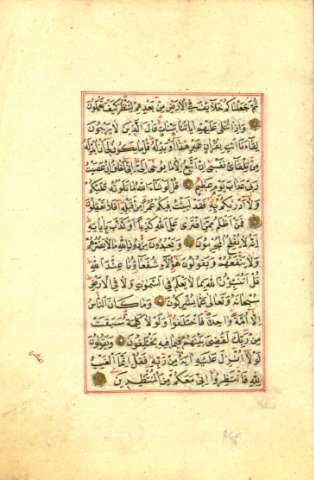 ثم جعلناكم خلائف في الارض من بعدهم لننظر كيف تعملون
واذا تتلى عليهم اياتنا بينات قال الذين لا يرجون
لقاءنا ائت بقران غير هذا او بدله قل ما يكون لي ان ابدله
من تلقائ نفسي ان اتبع الا ما يوحى الي اني اخاف ان عصيت
ربي عذاب يوم عظيم قل لو شاء الله ما تلوته عليكم
ولا ادريكم به فقد لبثت فيكم عمرا من قبله افلا تعقلون
فمن اظلم ممن افترى على الله كذبا او كذب باياته
انه لا يفلح المجرمون ويعبدون من دون الله ما لا يضرهم
ولا ينفعهم ويقولون هؤلاء شفعاؤنا عند الله
قل اتنبؤن الله بما لا يعلم في السموات ولا في الارض
سبحانه وتعالى عما يشركون وما كان الناس
الا امة واحدة فاختلفوا ولولا كلمة سبقت
من ربك لقضي بينهم فيما فيه يختلفون ويقولون
لولا انزل عليه اية من ربه فقل انما الغيب
لله فانتظروا اني معكم من المنتظرين